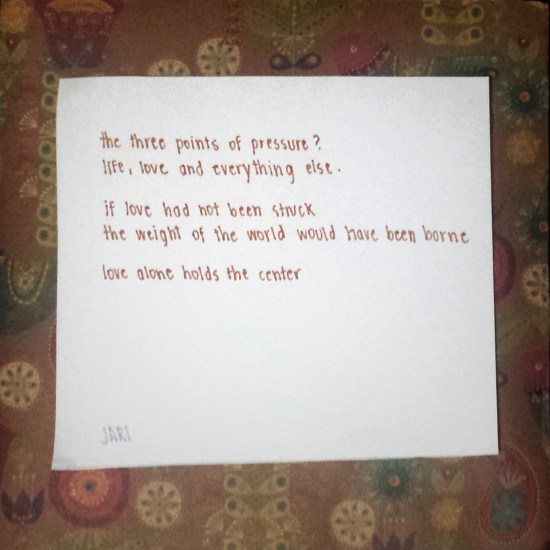 the three points of pressure?
life, love and everything else.
if love had not been struck
the weight of the world would have been borne
love alone holds the center
JARI